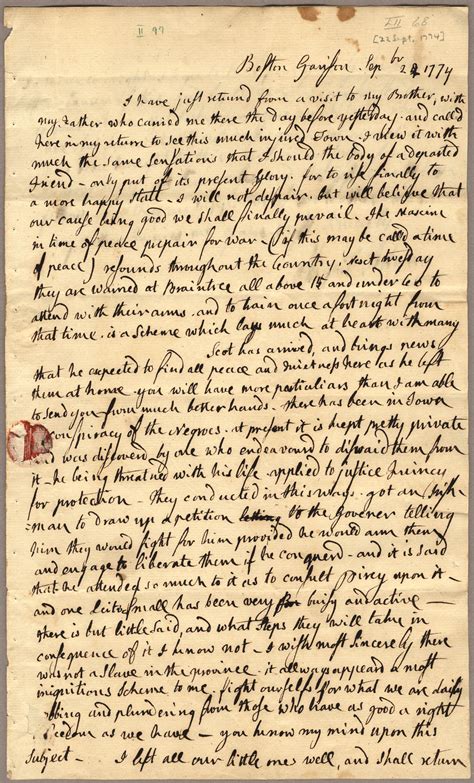 II 97
LII 68
[22 Sept. 1774]
Boston Garison Sepbr 22 1774
I have just returnd from a visit to my Brother, with
my Father who carried me there the day before yesterday, and call'd
here in my return to see this much injured Town. I view it with
much the same sensations that I should the body of a departed
Friend — only put of its present Glory. for to rise finally to
a more happy State — I will not despair, but will believe that
our cause being good we shall finally prevail. The Maxim
in time of peace prepair for war — (if this may be call'd a time
of peace) resounds throughout the Country. Next tuesday
they are warned at Braintree all above 15 and under 60 to
attend with their arms, and to train once a fortnight from
that time, is a Scheme which lays much at heart with many
Scot has arrived, and brings news
that he expected to find all peace and quietness here as he left
them at home — you will have more particuliars than I am able
to send you from much better hands. There has been in Town
conspiracy of the Negroes. at present it is kept pretty private
and was discoverd by one who endeavourd to diswaid them from
it — he being threatned with his life, applied to justice Quincy
for protection — they conducted in this way — got an Irish-
man to draw up a petition to the Govener telling
him they would fight for him provided he would arm them
and engage to liberate them if he conquerd — and it is said
that he attended so much to it as to consult Pircy upon it —
and one Leit Small has been very busy and active —
there is but little said, and what Steps they will take in
consequence of it I know not — I wish most sincerely there
was not a Slave in the province. it allways appeard a most
iniquitious Scheme to me. fight ourselfs for what we are daily
robbing and plundering from those who have as good a right
freedom as we have — you know my mind upon this
Subject — I left all our little ones well, and shall return